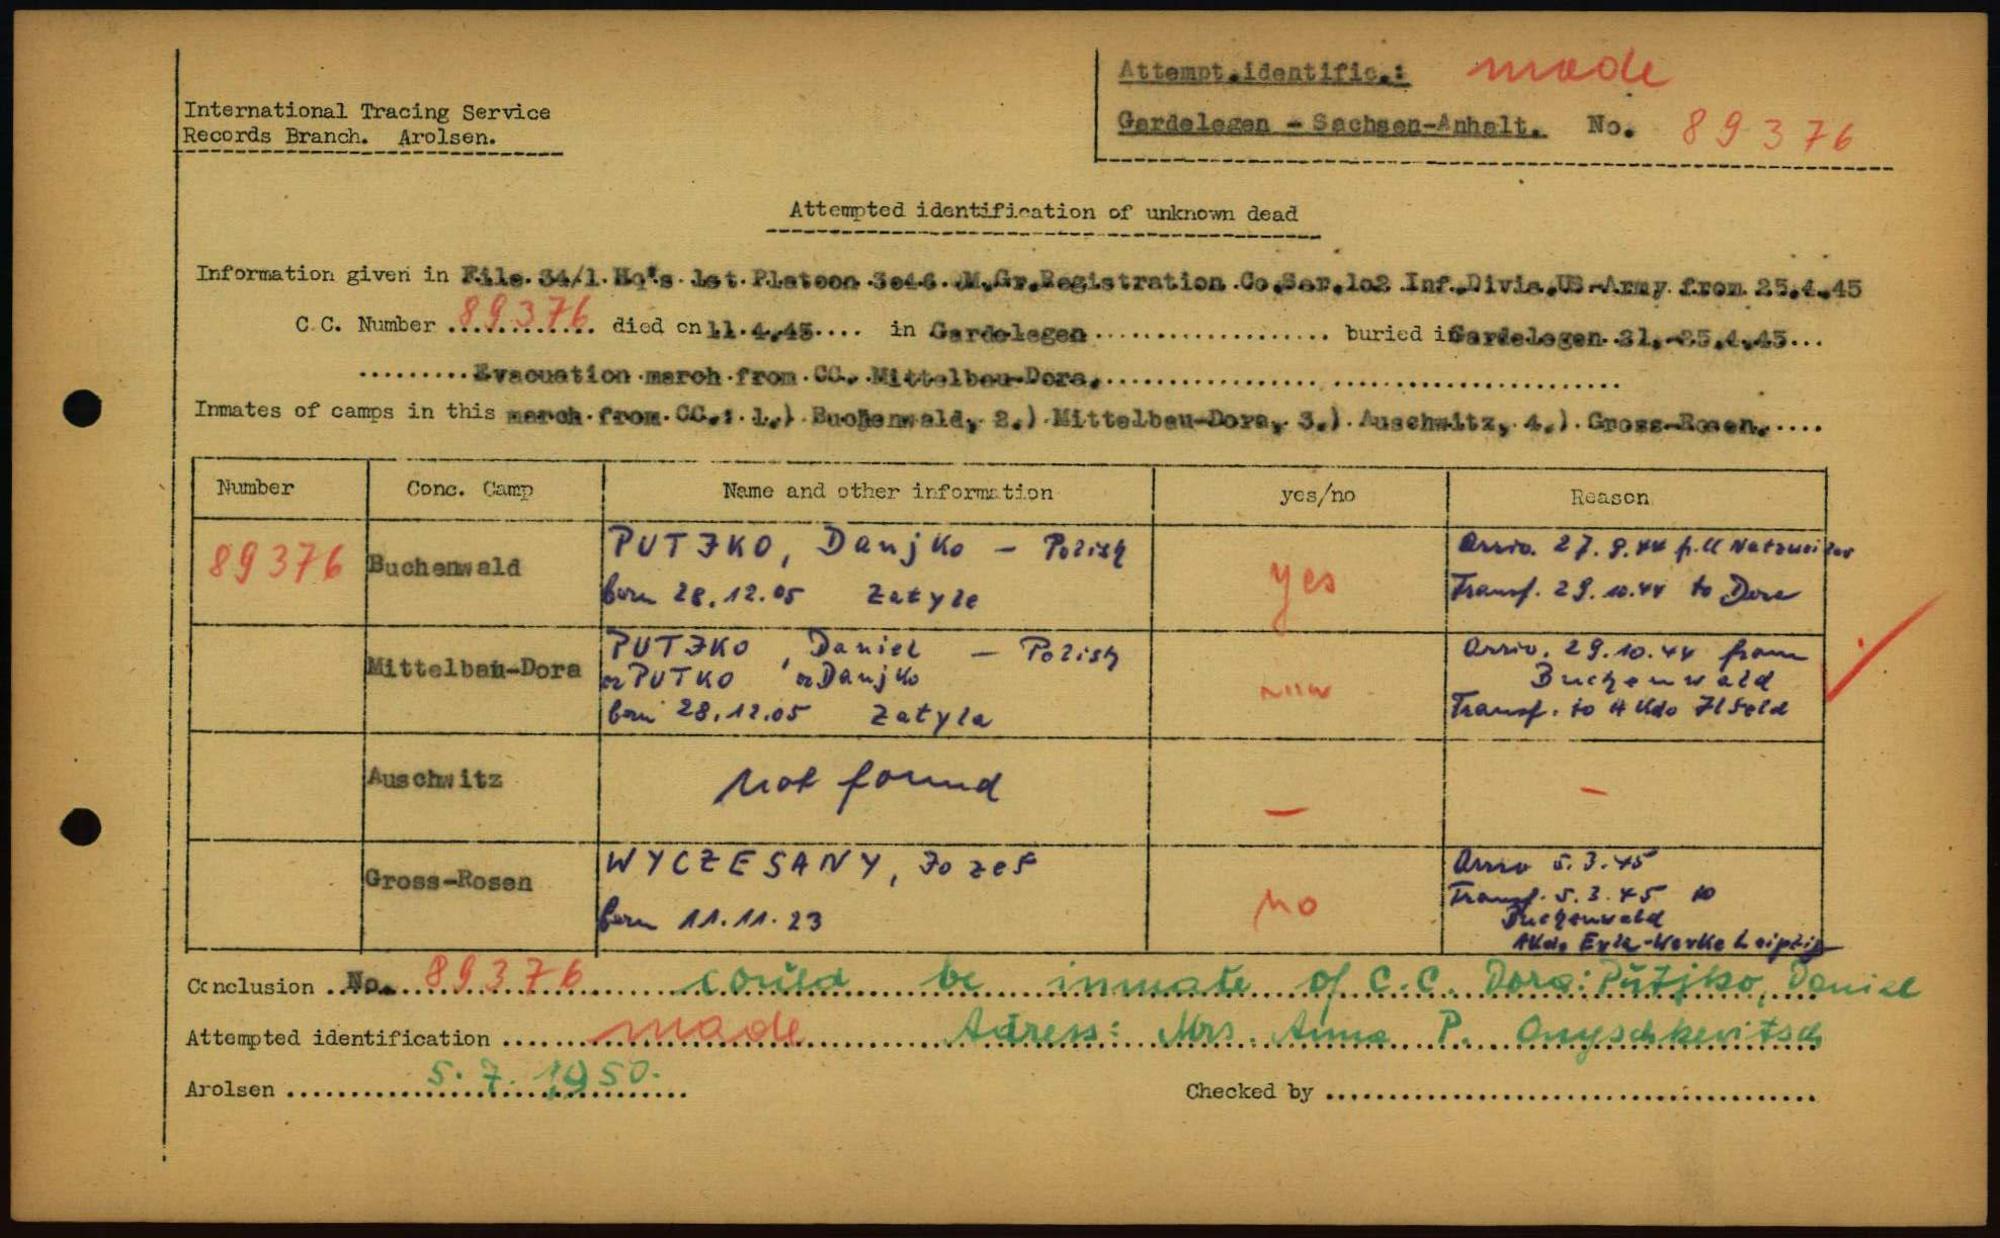 International Tracing Service
Records Branch. Arolsen.
Attempt.identific.: made
Gardelegen - Sachsen-Anhalt. No. 89376
Attempted identification of unknown dead
Information given in File 34/1 Hq's 1st Platoon 3046 .M.Gr.Registration Co.Ser.102 Inf.Divis.US-Army from 25.4.45
C.C. Number 89376 died on 11.4.45.... in Gardelegen........ buried in Gardelegen 21.-25.4.45...
Evacuation march from CC. Mittelbau-Dora.
Inmates of camps in this march from CC.: 1.) Buchenwald, 2.) Mittelbau-Dora, 3.) Auschwitz, 4.) Gross-Rosen.
Number Conc. Camp Name and other information yes/no Reason
89376 Buchenwald PUTJKO, Danjko - Polish yes Arriv. 27.9.44 f. Natzweiler
born 28.12.05 Zatyle Transf. 29.10.44 to Dora
Mittelbau-Dora PUTJKO, Daniel - Polish Arriv. 29.10.44 from
or PUTKO or Danjko Buchenwald
born 28.12.05 Zatyla Transf. to A Kdo Ilfeld
Auschwitz not found - -
Gross-Rosen WYCZESANY, Jozef no Arriv 5.3.45
born 11.11.23 Transf. 5.3.45 to
Buchenwald
AKdo Erla-Werke Leipzig
Conclusion No. 89376 could be inmate of C.C. Dora: Putjko, Daniel
Attempted identification made Adress: Mrs. Anna P. Onyschkevitsch
Arolsen 5.7.1950. Checked by